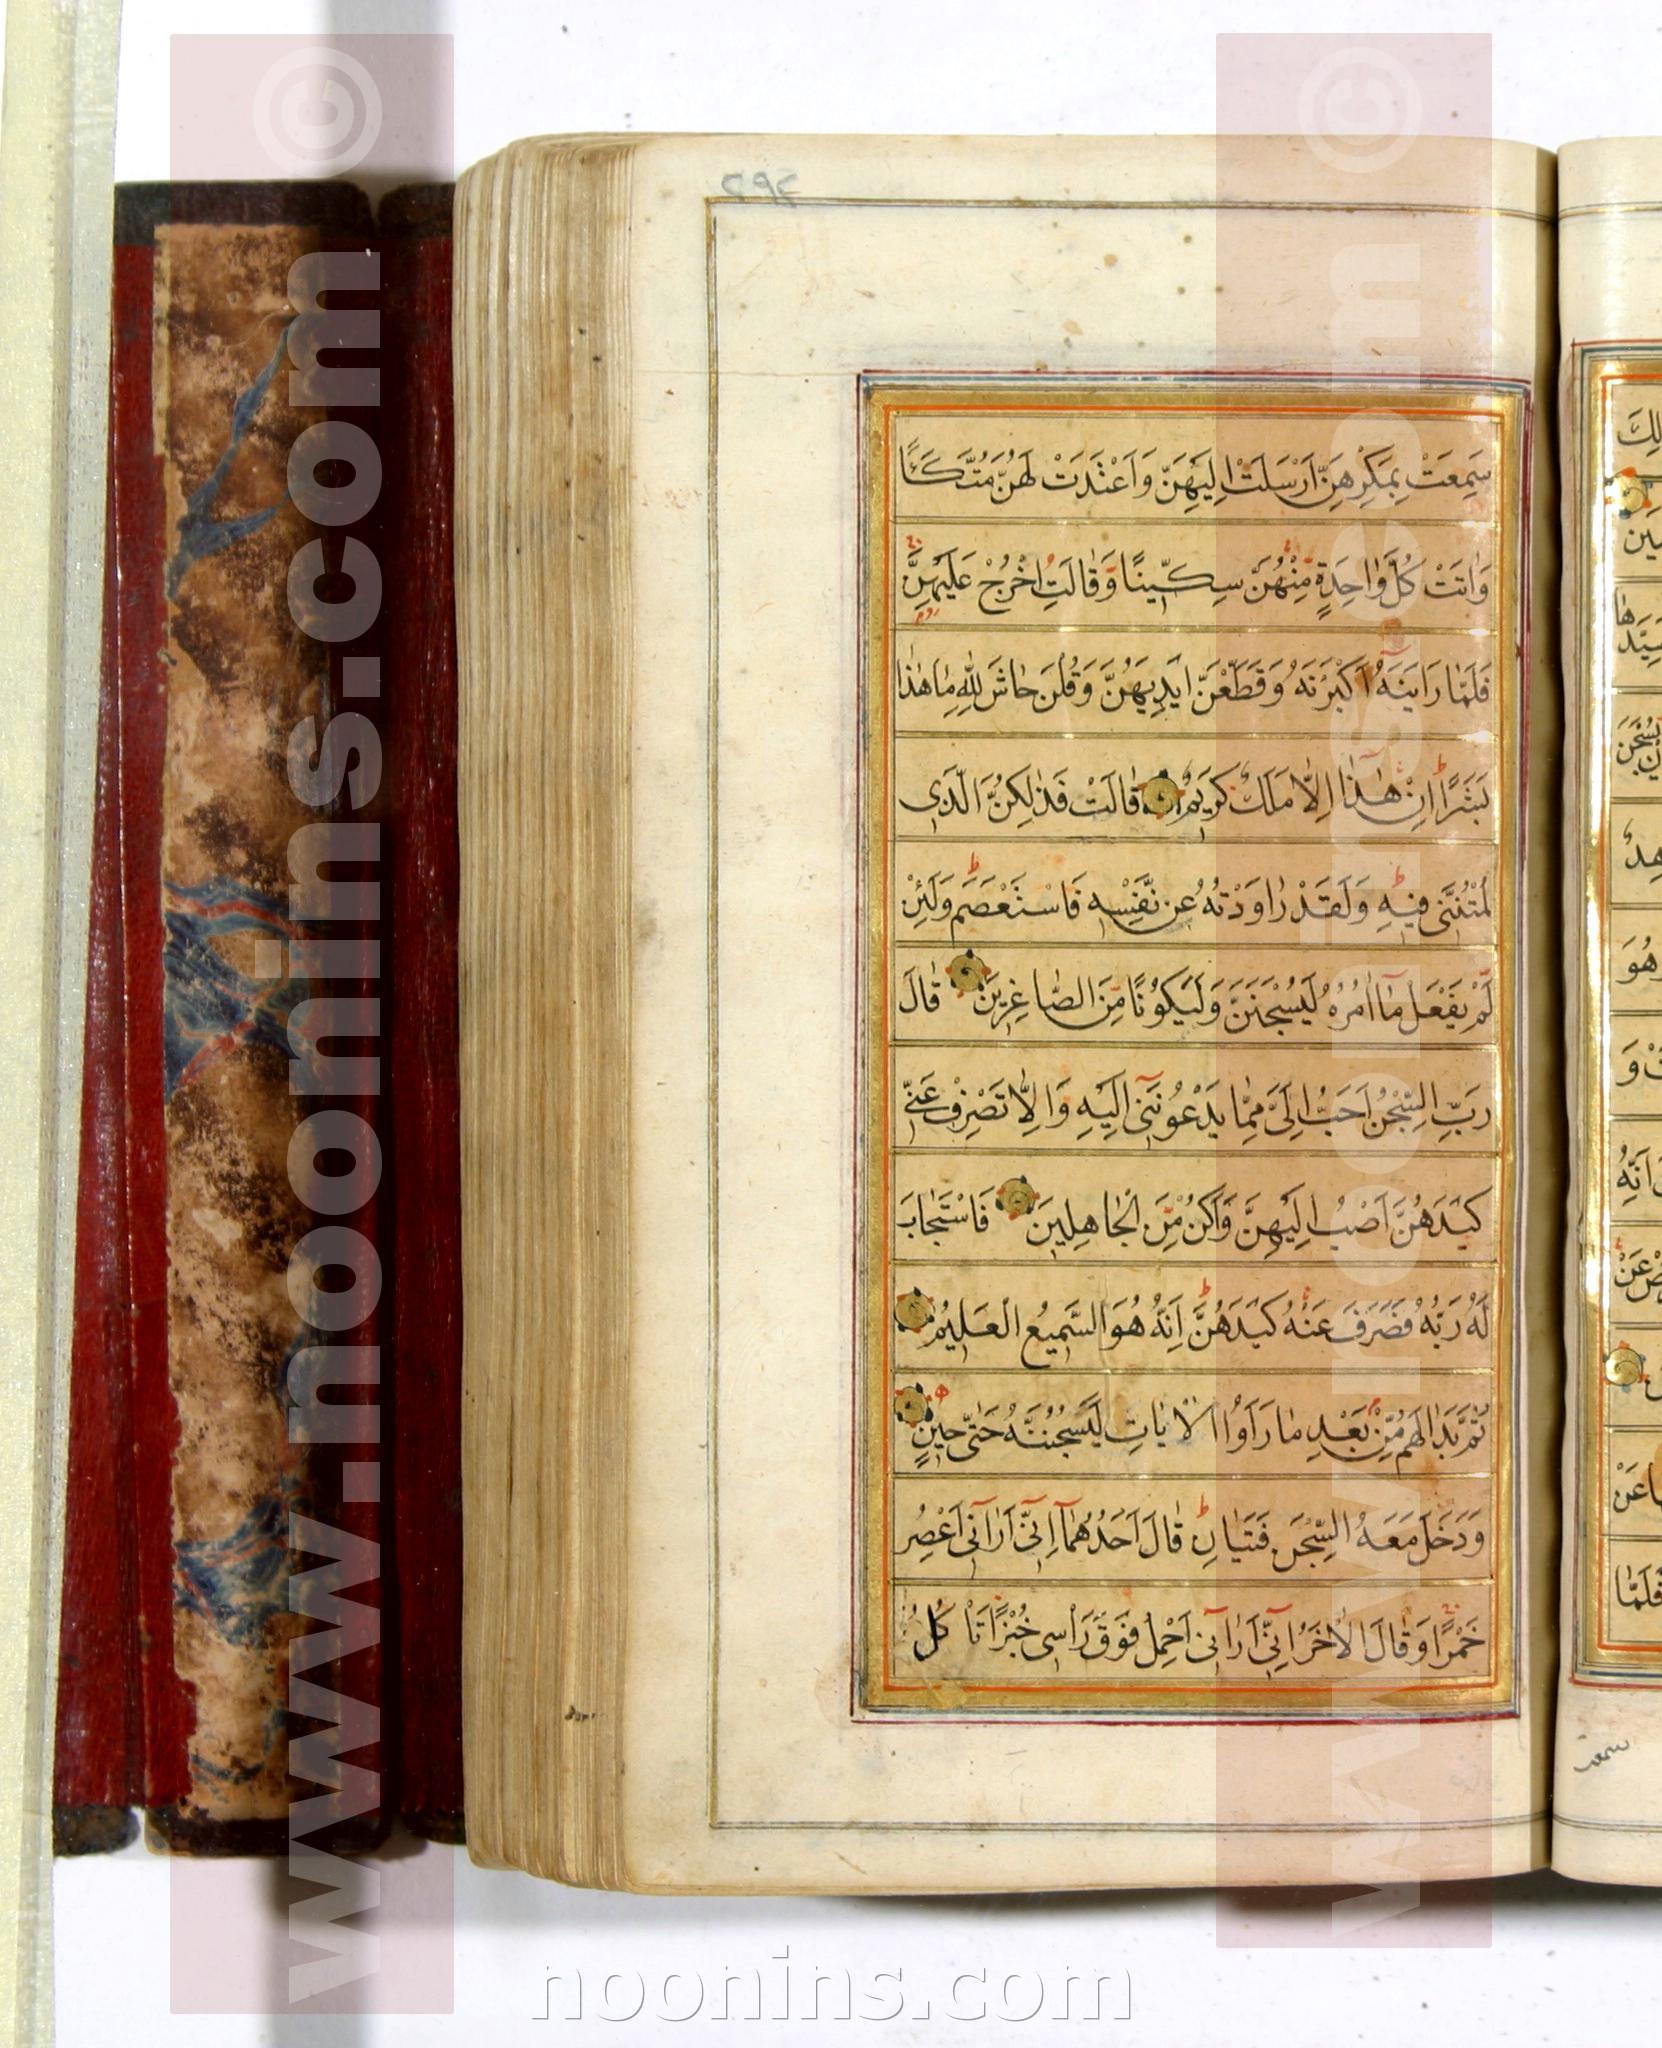 ۲۹۲
سَمِعَتْ بِمَكْرِهِنَّ اَرْسَلَتْ اِلَيْهِنَّ وَاَعْتَدَتْ لَهُنَّ مُتَّكَـًٔا
وَّاٰتَتْ كُلَّ وَاحِدَةٍ مِّنْهُنَّ سِكِّيْنًا وَّقَالَتِ اخْرُجْ عَلَيْهِنَّ
فَلَمَّا رَاَيْنَهٗٓ اَكْبَرْنَهٗ وَقَطَّعْنَ اَيْدِيَهُنَّ وَقُلْنَ حَاشَ لِلّٰهِ مَا هٰذَا
بَشَرًا اِنْ هٰذَآ اِلَّا مَلَكٌ كَرِيْمٌ قَالَتْ فَذٰلِكُنَّ الَّذِى
لُمْتُنَّنِى فِيْهِ وَلَقَدْ رَاوَدْتُهٗ عَنْ نَّفْسِهٖ فَاسْتَعْصَمَ وَلَئِنْ
لَّمْ يَفْعَلْ مَآ اٰمُرُهٗ لَيُسْجَنَنَّ وَلَيَكُوْنًا مِّنَ الصَّاغِرِيْنَ قَالَ
رَبِّ السِّجْنُ اَحَبُّ اِلَىَّ مِمَّا يَدْعُوْنَنِىٓ اِلَيْهِ وَاِلَّا تَصْرِفْ عَنِّى
كَيْدَهُنَّ اَصْبُ اِلَيْهِنَّ وَاَكُنْ مِّنَ الْجَاهِلِيْنَ فَاسْتَجَابَ
لَهٗ رَبُّهٗ فَصَرَفَ عَنْهُ كَيْدَهُنَّ اِنَّهٗ هُوَ السَّمِيْعُ الْعَلِيْمُ
ثُمَّ بَدَا لَهُمْ مِّنْ بَعْدِ مَا رَاَوُا الْاٰيَاتِ لَيَسْجُنُنَّهٗ حَتّٰى حِيْنٍ
وَدَخَلَ مَعَهُ السِّجْنَ فَتَيَانِ قَالَ اَحَدُهُمَآ اِنِّىٓ اَرَانِىٓ اَعْصِرُ
خَمْرًا وَقَالَ الْاٰخَرُ اِنِّىٓ اَرَانِىٓ اَحْمِلُ فَوْقَ رَاْسِى خُبْزًا تَاْكُلُ
سمعت
www.noonins.com ©
www.noonins.com ©
noonins.com